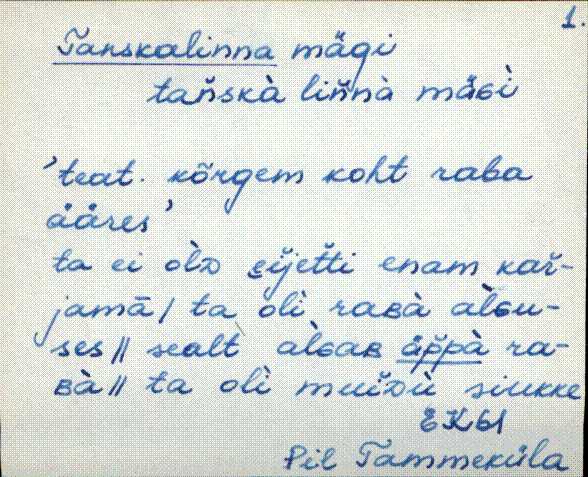 1.
Tanskalinna mägi
tan̆skà lin̆nà mäɢì
'teat. kõrgem koht raba
ääres'
ta ei òlᴅ eijetti enam kar̆-
jamā / ta olì raʙà àlɢu-
ses // sealt àlɢaʙ äp̆pà ra-
ʙà // ta olì muiᴅù siukke
EKSI
Pil Tammeküla